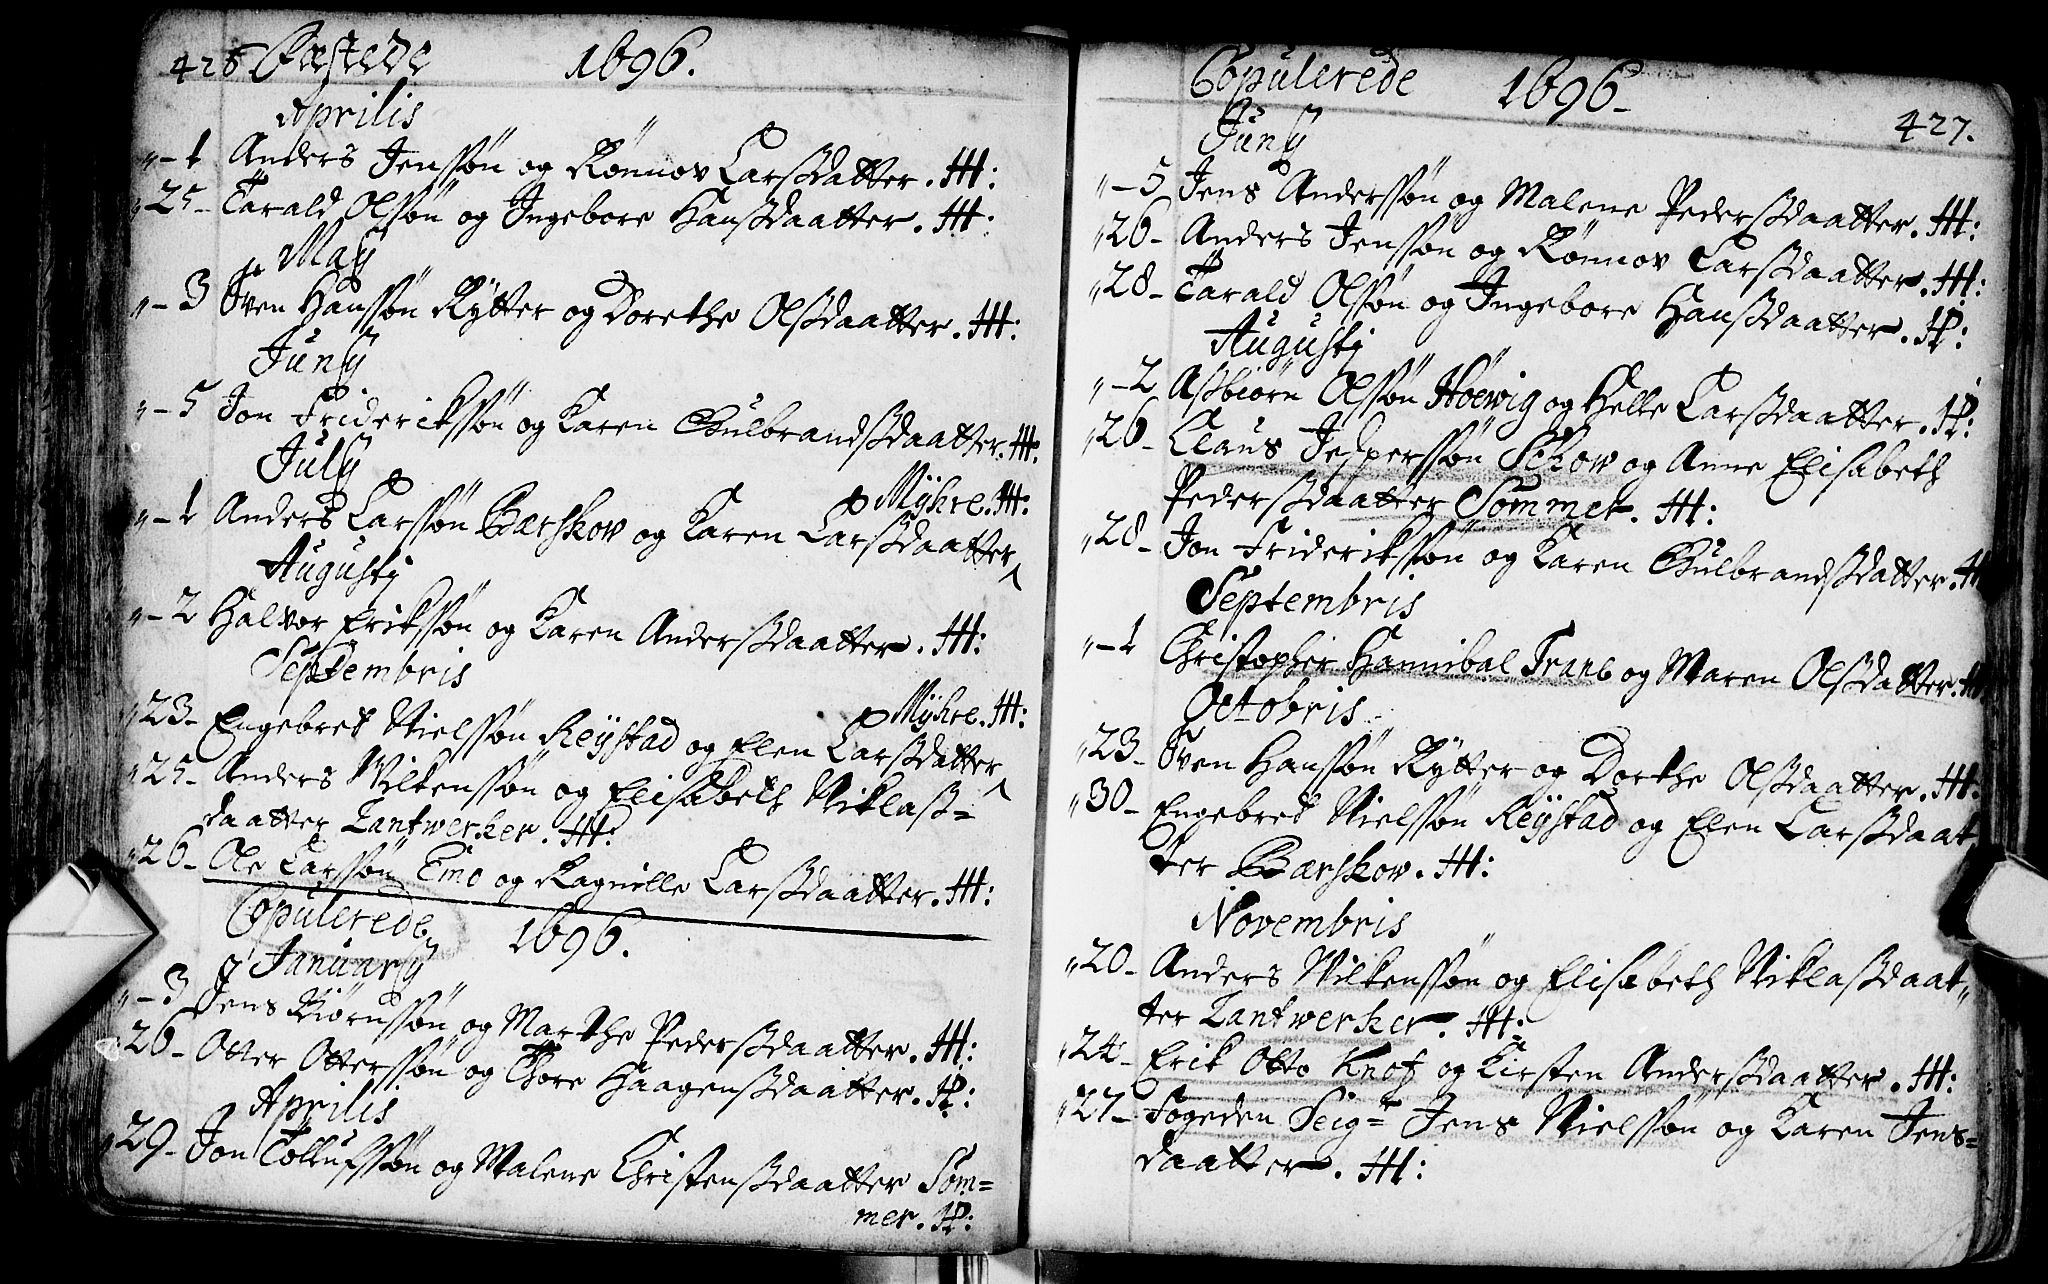 426 Fæstede 1696.
Aprilis
"-1 Anders Jenssøn og Rønnov Larsdatter. HH:
"25- Tarald Olssøn og Ingebore Hansdaatter. HH:
May
"-3 Sven Hanssøn Rÿtter og Dorethe Olsdaatter. HH:
Junÿ
"-5 Jon Frideriksson og Karen Gulbrandsdaatter. HH:
Julÿ
Mÿhre. HH:
"-1 Anders Larssøn Bærskov og Karen Larsdaatter
Augustj
"-2 Halvor Erikssøn og Karen Andersdaatter. HH:
Septembris
Mÿhre. HH:
"23- Engebret Nielssøn Reÿstad og Elen Larsdatter
"25- Anders Wilkenssøn og Elisabeth Niklas=
daatter Zantwerker. HH:
"26- Ole Larssøn Emo og Ragnille Larsdaatter. HH:
Copulerede 1696.
Januarÿ
"-3 Jens Biørnssøn og Marthe Pedersdaatter. HH:
"26- Otter Otterssøn og Thore Haagensdaatter. HP:
Aprilis
"29- Jon Tollufssøn og Malene Christensdaatter Som=
mer. HP:
Copulerede 1696-
427.
Junÿ
"-5 Jens Anderssøn og Malene Pedersdaatter. HH:
"26- Anders Jenssøn og Rønnov Larsdaatter. HH:
"28- Tarald Olssøn og Ingebore Hansdaatter. HP:
Augustj
"-2 Asbiørn Olssøn Høewig og Helle Larsdaatter. HP:
"26- Claus Jesperssøn Schow og Anne Elisabeth
Pedersdaatter Sommer. HH:
"28- Jon Friderikssøn og Karen Gulbrandsdatter. HH
Septembris
"-1 Christopher Hannibal Trane og Maren Olsdatter. HH
Octobris
"23- Sven Hanssøn Rÿtter og Dorthe Olsdaatter. HH:
"30- Engebret Nielssøn Reÿstad og Elen Larsdaat
ter Bærskov. HH:
Novembris
"20- Anders Wilkenssøn og Elisabeth Niklasdaat=
ter Zantwerker. HH:
"24- Erik Otto Knof og Kirsten Andersdaatter. HH:
"27- Fogeden Seigr Jens Nielssøn og Karen Jens=
daatter. HH: